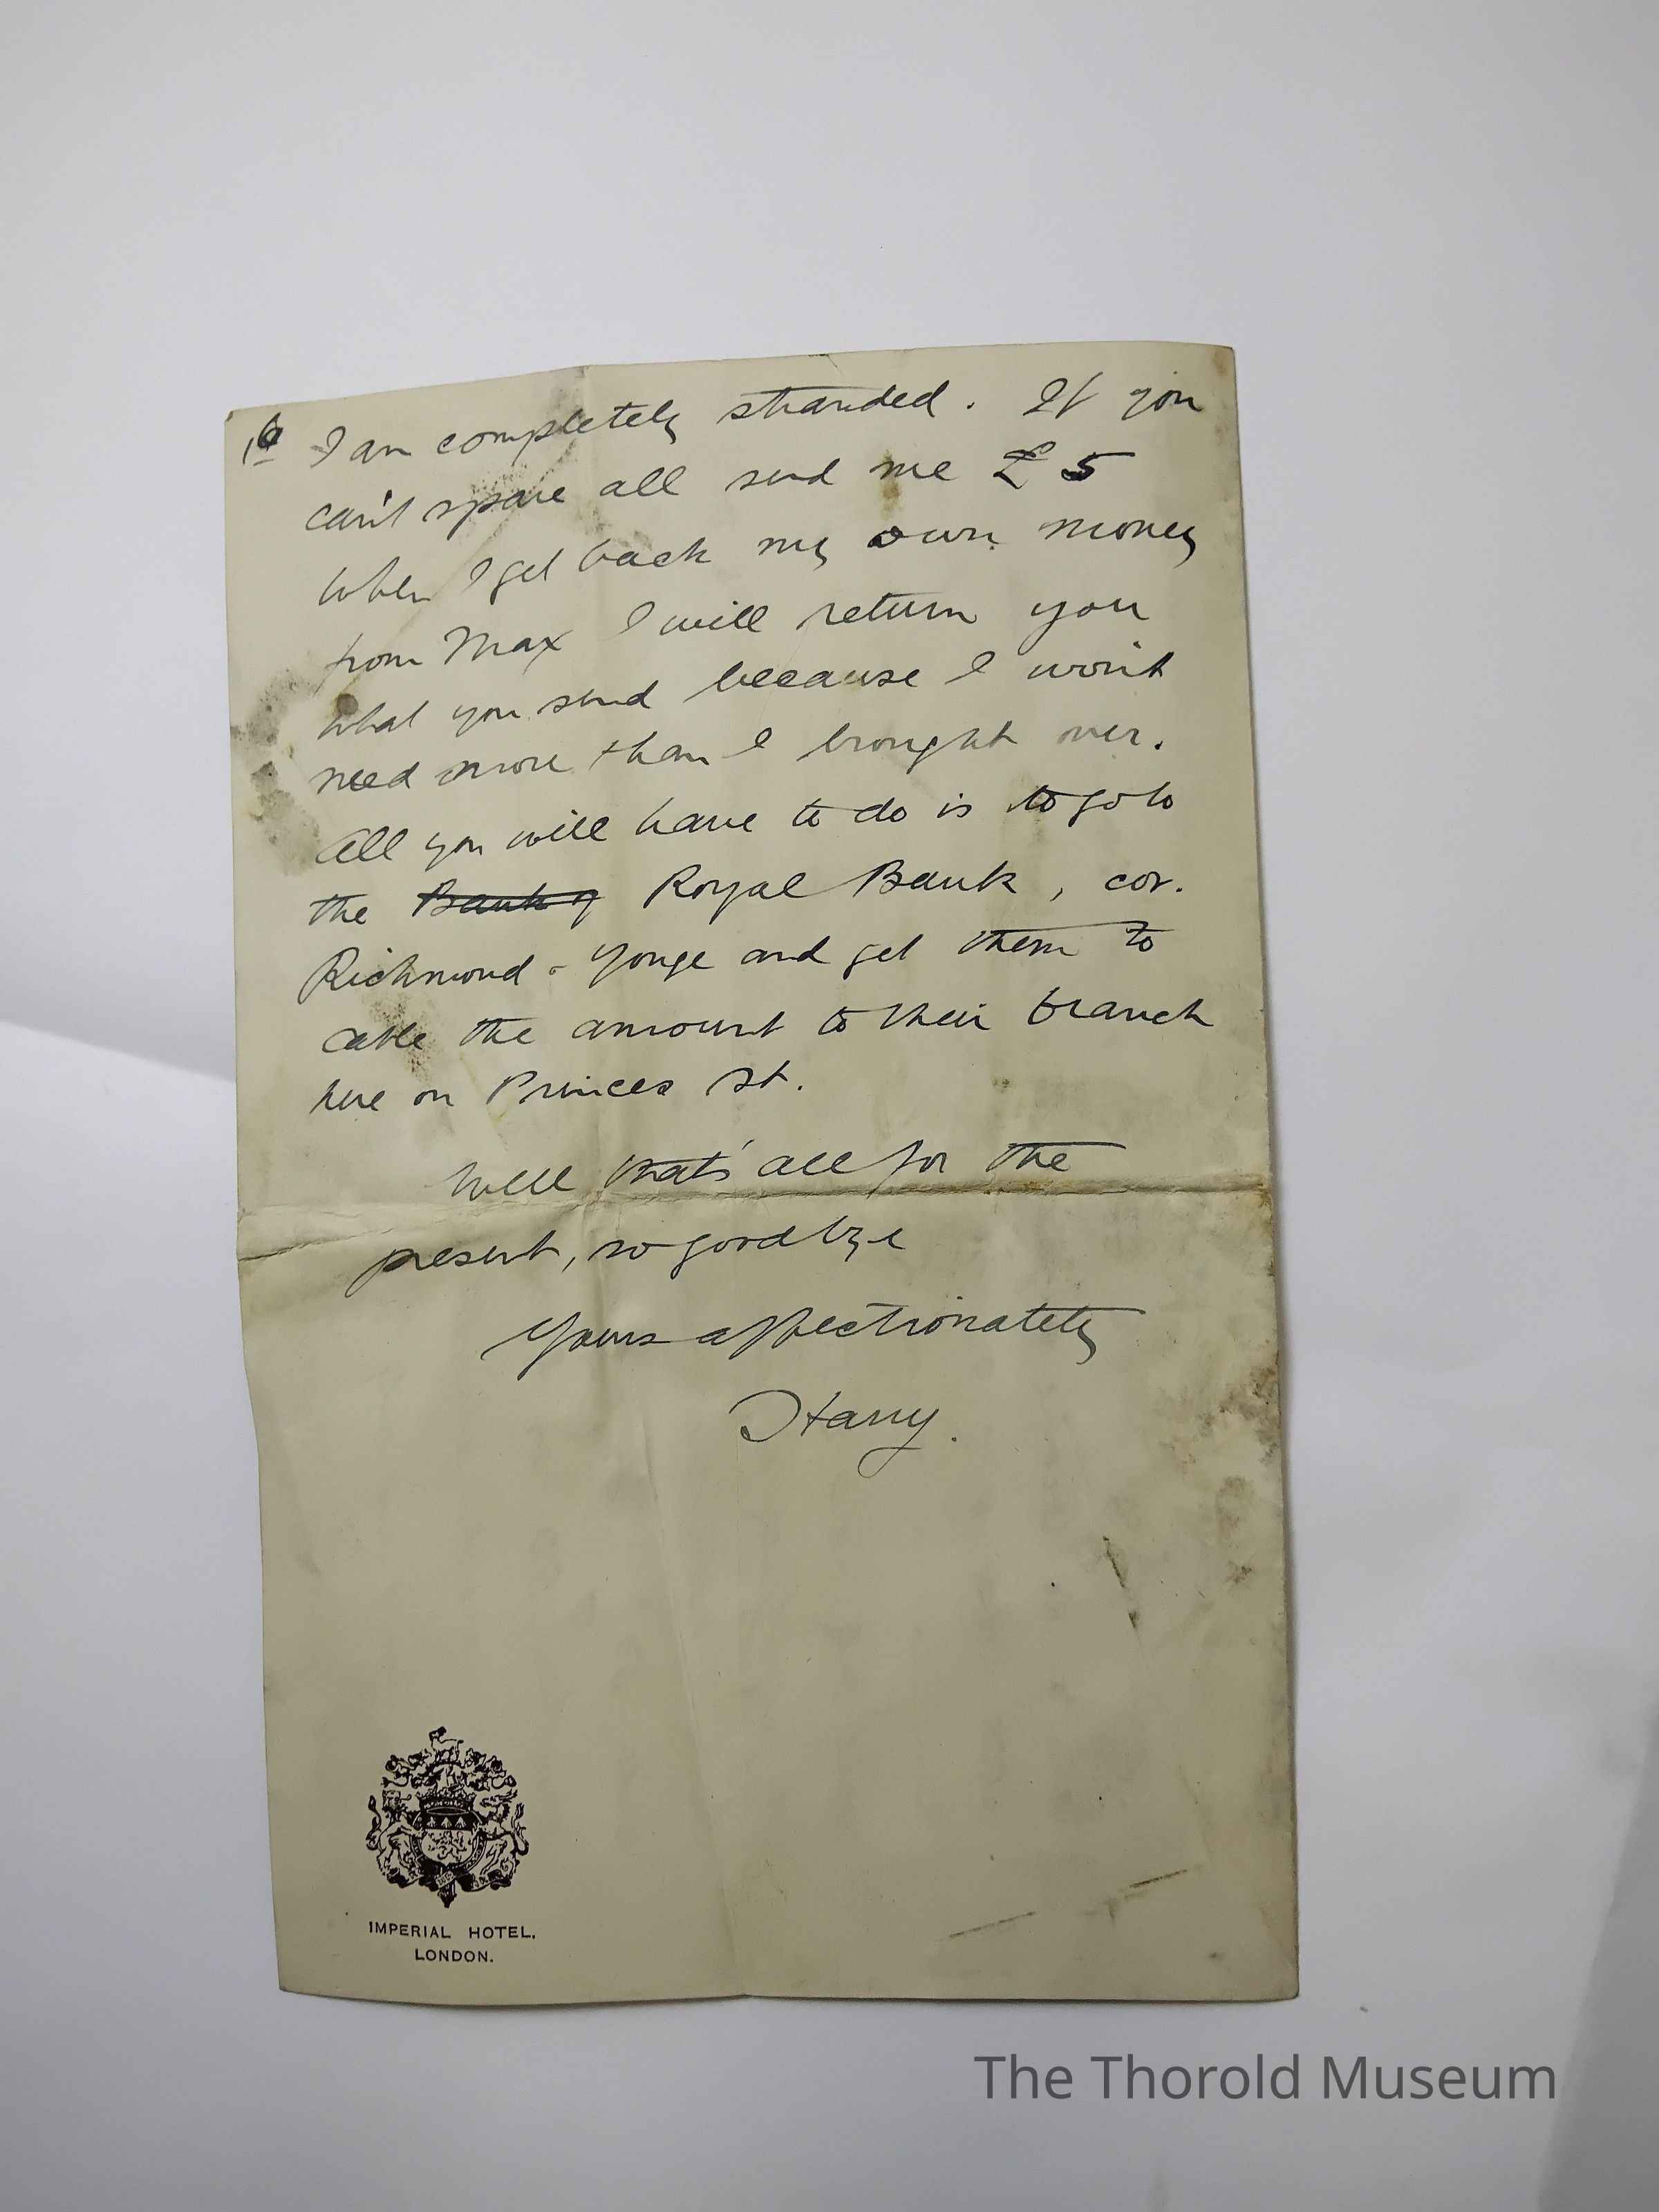 6 I am completely stranded. If you
can't spare all send me £5
when I get back my own money
from Max I will return you
what you send because I won't
need more than I brought over.
All you will have to do is to go to
the Bank of Royal Bank, cor.
Richmond - Yonge and get them to
cable the amount to their branch
here on Princes St.
Well that's all for the
present, so goodbye
Yours affectionately
Harry.
IMPERIAL HOTEL.
LONDON.
The Thorold Museum